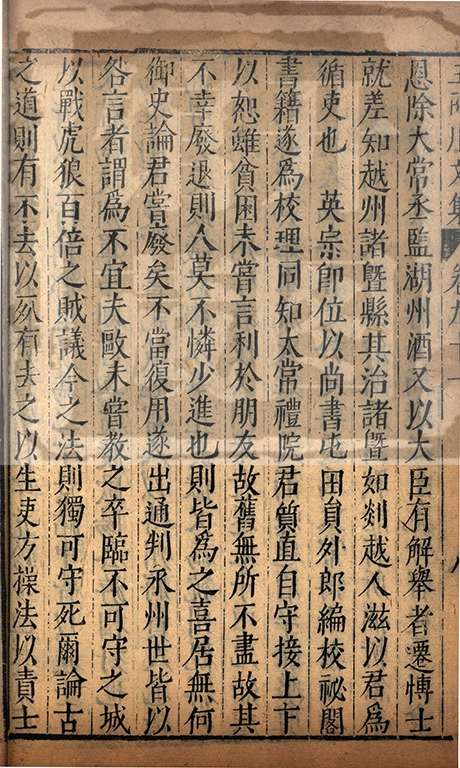 恩除大常丞監湖州酒又以大臣有解舉者遷博士
就差知越州諸暨縣其治諸暨如剡越人滋以君為
循吏也　英宗即位以尚書屯田員外郎編校祕閣
書籍遂為校理同知太常禮院君質直自守接上下
以恕雖貧困未嘗言利於朋友故舊無所不盡故其
不幸廢退則人莫不憐少進也則皆為之喜居無何
御史論君嘗廢矣不當復用遂出通判永州世皆以
咎言者謂為不宜夫敺未嘗教之卒臨不可守之城
以戰虎狼百倍之賊議今之法則獨可守死爾論古
之道則有不去以死有去之以生吏方操法以責士